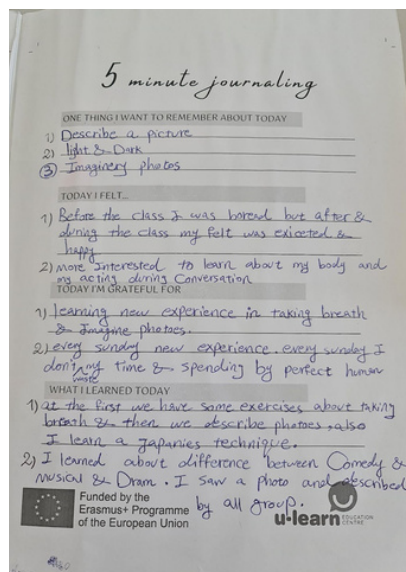 5 minute journaling
ONE THING I WANT TO REMEMBER ABOUT TODAY
1) Describe a picture
2) light & Dark
3) Imaginery photos
TODAY I FELT...
1) Before the class I was bored but after &
during the class my felt was exiceted &
happy
2) more Interested to learn about my body and
my acting during Conversation
TODAY I'M GRATEFUL FOR
1) learning new experience in taking breath
& Imagine photoes.
2) every sunday new experience. every sunday I
don't waste my time & spending by perfect human
WHAT I LEARNED TODAY
1) at the first we have some exercises about taking
breath & then we describe photoes, also
I learn a Japanies technique.
2) I learned about difference between Comedy &
Musical & Dram. I saw a photo and described
by all group.
Funded by the
Erasmus+ Programme
of the European Union
u-learn EDUCATION
CENTRE